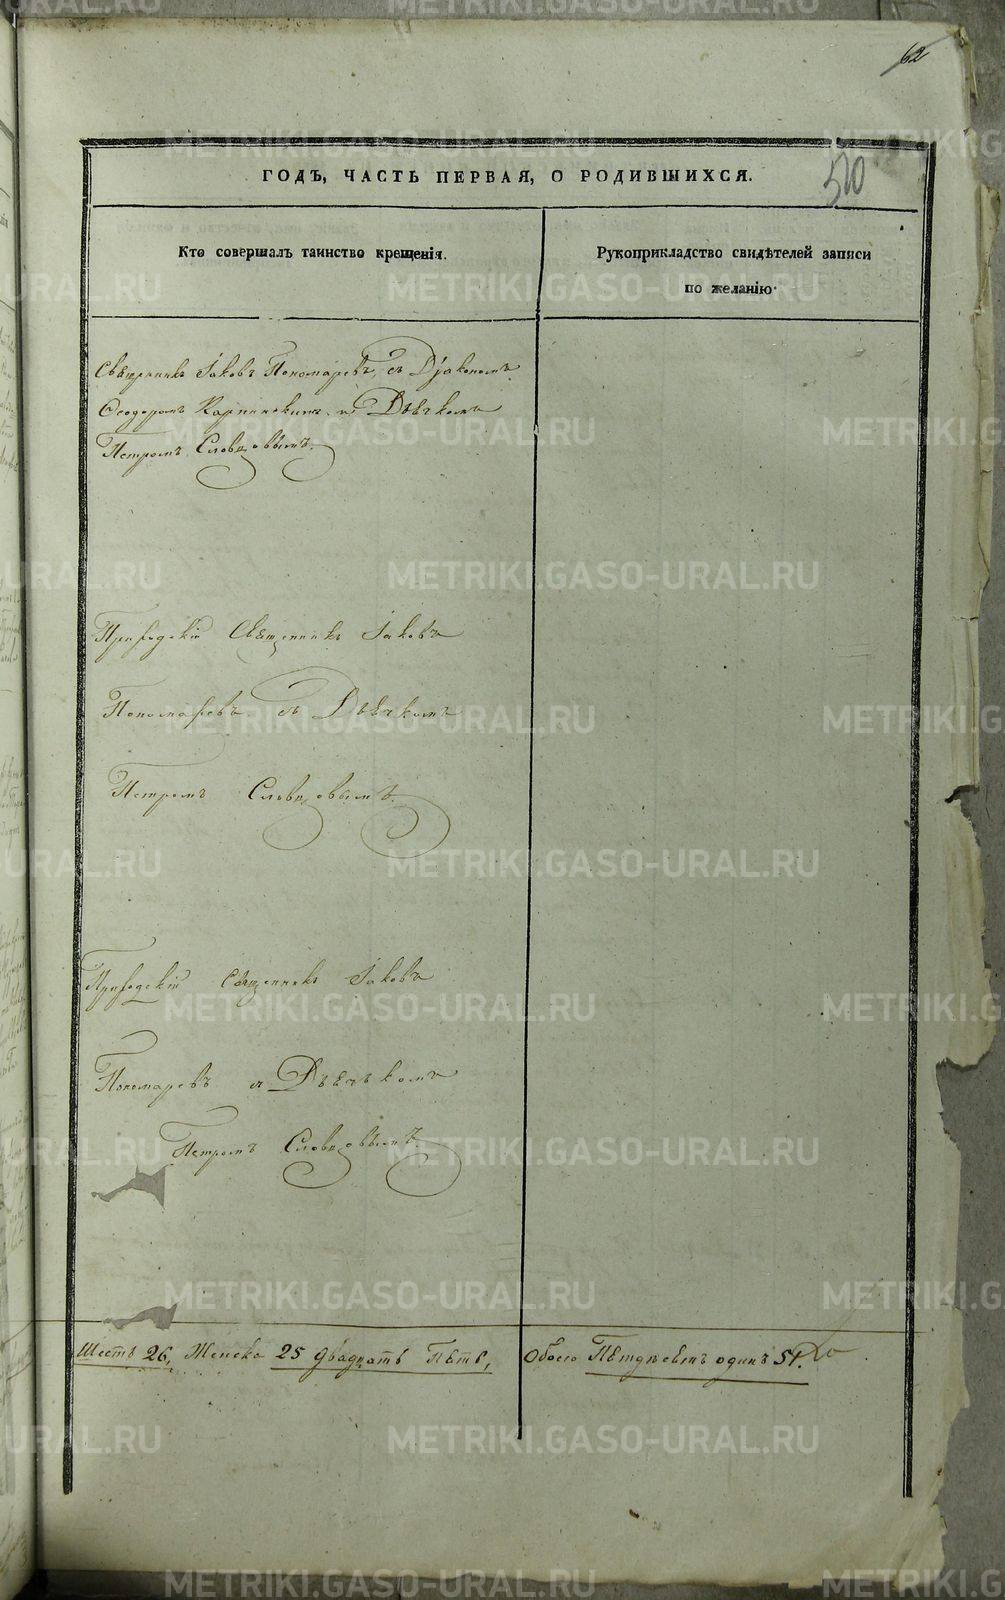 62
510
ГОДЪ, ЧАСТЬ ПЕРВАЯ, О РОДИВШИХСЯ.
Кто совершалъ таинство крещенія.
Рукоприкладство свидѣтелей записи
по желанію.
Священникъ Іаковъ Пономаревъ, съ Діакономъ
Ѳеодоромъ Карпинскимъ и Дьячкомъ
Петромъ Словцовымъ.
Приходскій Священникъ Іаковъ
Пономаревъ съ Дьячкомъ
Петромъ Словцовымъ.
Приходскій Священникъ Іаковъ
Пономаревъ съ Дьячькомъ
Петромъ Словцовымъ.
Шесть 26, Женска 25 двадцать пять, Обоего Пятдесятъ одинъ 51.
METRIKI.GASO-URAL.RU